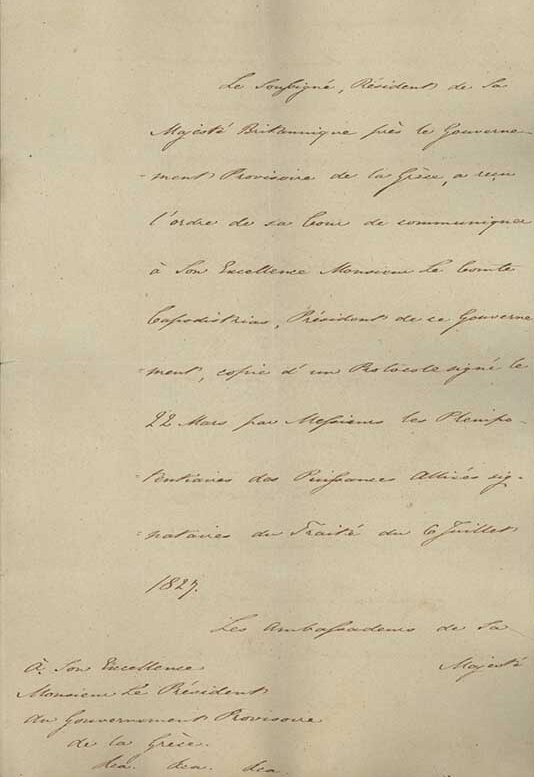 Le Soussigné, Résident de Sa
Majesté Britannique près le Gouverne-
-ment Provisoire de la Grèce, a reçu
l'ordre de sa Cour de communiquer
à Son Excellence Monsieur Le Comte
Capodistrias, Président de ce Gouverne
-ment, copie d'un Protocole signé le
22 Mars par Messieurs les Plenipo-
-tentiaires des Puissances Alliées sig-
-nataires du Traité du 6 Juillet
1827.
Les Ambassadeurs de Sa
Majesté
À Son Excellence
Monsieur Le Président
du Gouvernement Provisoire
de la Grèce.
&ca. &ca. &ca.